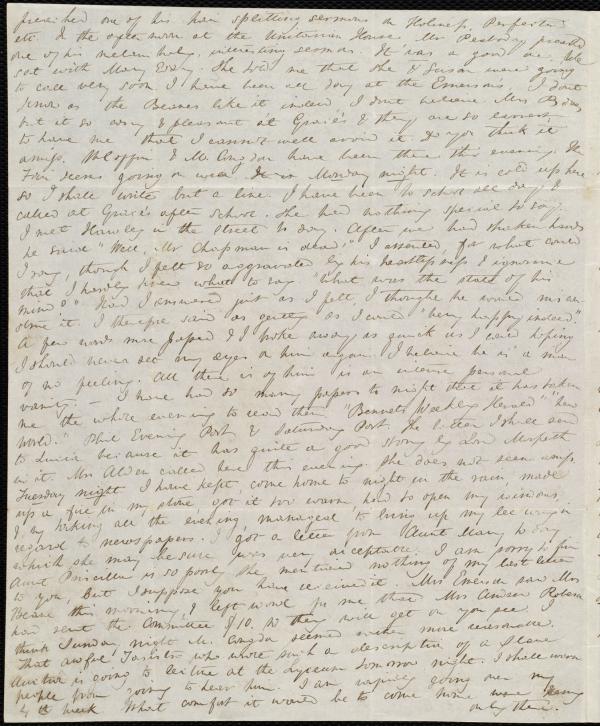 preached one of his hair splitting sermons on Holiness, Perfection
etc. In the afternoon at the Unitarian House Mr Peabody preached
one of his melancholy, interesting sermons. It was a good one. We
sat with Mary Eddy. She told me that she & Susan were going
to call very soon. I have been all day at the Emersons. I don't
know as the Beares like it indeed I don't believe Mrs B. does,
but it so cosy & pleasant at Gracie's & they are so earnest
to have me that I cannot well avoid it. Do you think it
amiss. Wh Coffin & M. Congdon have been there this evening. The
Fair seems going on well. Monday night. It is cold up here
so I shall write but a line. I have been to school all day, &
called at Gracie's after school. She had nothing special to say.
I met Hawley in the street to day. After we had shaken hands
he said "Well, Mr Chapman is dead!" I assented, for what could
I say, though I felt so aggravated by his heartlessness & ignorance
that I hardly knew what to say "What was the state of his
mind?" Had I answered just as I felt, I thought he would miscon-
strue it. I therefore said as quietly as I could "very happy indeed".
A few words more passed & I broke away as quick as I could hoping
I should never set my eyes on him again. I believe he is a man
of no feeling. All there is of him is an intense personal
vanity. — I have had so many papers to night that it has taken
me the whole evening to read them "Bennets Weekly Herald" "New
World." Phil Evening Post & Saturday Post. The latter I shall send
to Lucia because it has quite a good story by Lord Morpeth
in it. Mrs Alden called here this evening. She does not seem amiss.
Tuesday night I have kept, come home to night in the rain made
up a fire in my stove, got it too warm, had to open my windows,
& by working all the evening, managed to bring up my lee way in
regard to newspapers. I got a letter from Aunt Mary to day
which she may be sure was very acceptable. I am sorry to find
Aunt Priscilla is so poorly she mentioned nothing of my last letter
to you, but I suppose you have received it. Mrs Emerson saw Mrs
Beare this morning, & left word for me that Mrs Andrew Robeson
had sent the Committee $10. So they will get on you see. I
think Sunday night M. Congdon seemed rather more reasonable.
That awful Tasistro who wrote such a description of a Slave
Auction is going to lecture at the Lyceum tomorrow night. I shall warn
people from going to hear him. I am rapidly going over my
4th week. What comfort it would be to come home were Deary
only there.